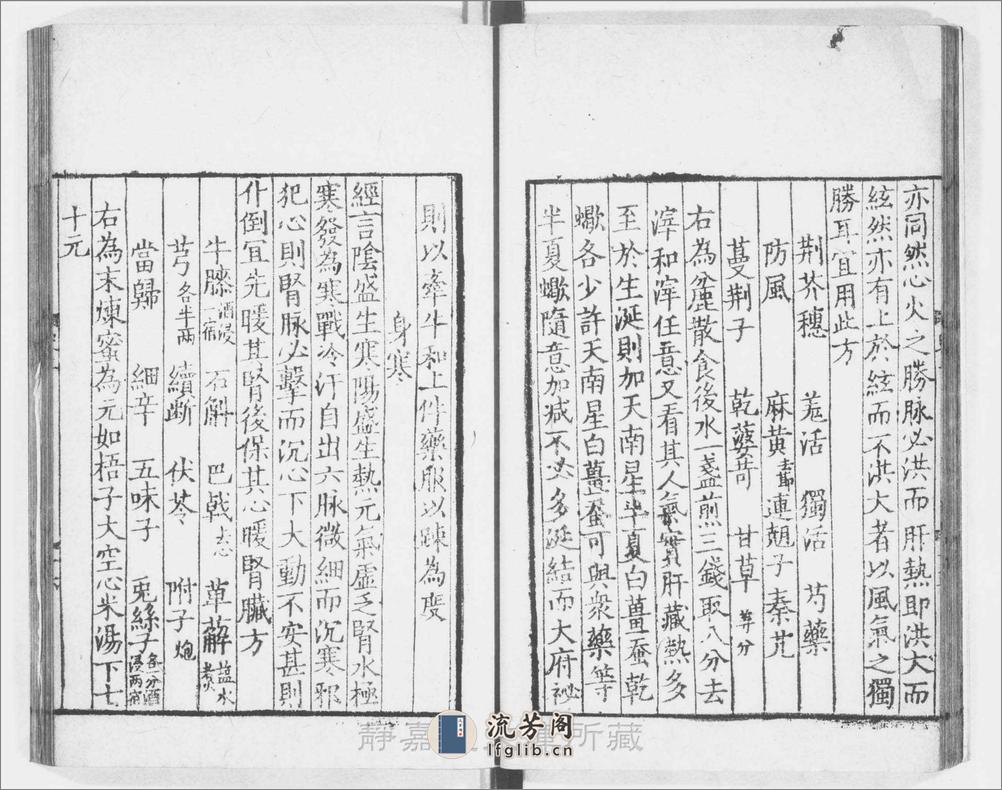 亦同然心火之勝脉必洪而肝熱即洪大而
絃然亦有上於絃而不洪大者以風氣之獨
勝耳宜用此方
荆芥穗 羌活 獨活 芍藥
防風 麻黄去節 連翹子 秦艽
蔓荆子 乾葛 甘草 等分
右為麄散食後水一盞煎三錢取八分去
滓和滓任意又看其人氣實肝藏熱多
至於生涎則加天南星半夏白薑蚕乾
蠍各少許天南星白薑蚕可與衆藥等
半夏蠍隨意加减不必多涎結而大府祕
則以牽牛和上件藥服以疎為度
身寒
經言陰盛生寒陽盛生熱元氣虚乏腎水極
寒發為寒戰冷汗自出六脉微細而沉寒邪
犯心則腎脉必擊而沉心下大動不安甚則
仆倒宜先暖其腎後保其心暖腎臟方
牛膝酒浸一宿 石斛 巴戟去心 萆薢塩水煮
芎各半兩 續断 伏苓 附子炮
當歸 細辛 五味子 兎絲子各一分酒浸两宿
右為末煉蜜為元如梧子大空心米湯下七
十元
静嘉 所藏
流芳阁
lfglib.cn